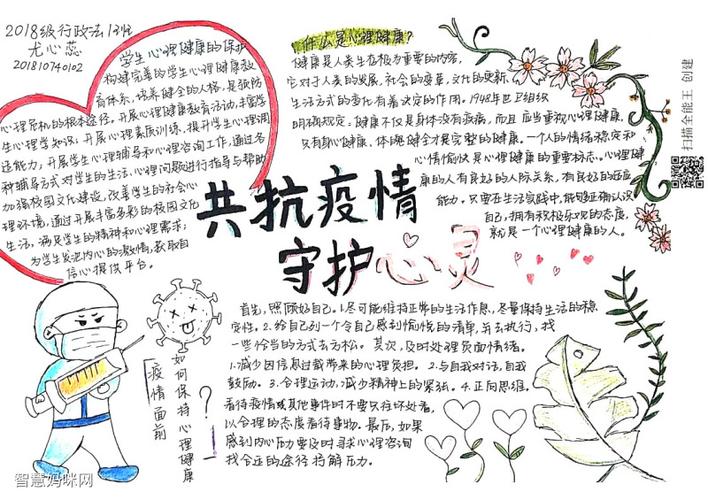 2018级行政法1班
尤心蕊
201810740102
学生心理健康的保护
构建完善的学生心理健康教
育体系，培养健全的人格，是预防
心理危机的根本途径。开展心理健康教育活动，丰富学
生心理学知识；开展心理素质训练，提升学生心理调
适能力；开展学生心理辅导和心理咨询工作，通过各
种辅导方式对学生的生活、心理问题进行指导与帮助
加强校园文化建设，改善学生的社会心
理环境，通过开展丰富多彩的校园文化
生活，满足学生的精神和心理需求；
为学生发泄内心的激情，获取自
信心提供平台。
什么是心理健康？
健康是人类生存极为重要的内容，
它对于人类的发展，社会的变革，文化的更新，
生活方式的变化有着决定的作用。1948年世卫组织
明确规定：健康不仅是身体没有疾病，而且应当重视心理健康，
只有身心健康、体魄健全才是完整的健康。一个人的情绪稳定和
心情愉快是心理健康的重要标志。心理健
康的人有良好的人际关系，有良好的适应
能力。只要在生活实践中，能够正确认识
自己，拥有积极乐观的态度，
就是一个心理健康的人。
共抗疫情
守护心灵
疫情面前
如何保持心理健康？
首先，照顾好自己。1.尽可能维持正常的生活作息，尽量保持生活的稳
定性。2.给自己列一个令自己感到愉悦的清单，并去执行，找
一些恰当的方式去放松。其次，及时处理负面情绪。
1.减少因信息过载带来的心理负担。2.与自我对话，自我
鼓励。3.合理运动，减少精神上的紧张。4.正向思维。
看待疫情或其他事件时不要只往坏处看，
以合理的态度看待事物。最后，如果
感到内心压力要及时寻求心理咨询
找合适的途径排解压力。
扫描全能王 创建
智慧妈咪网